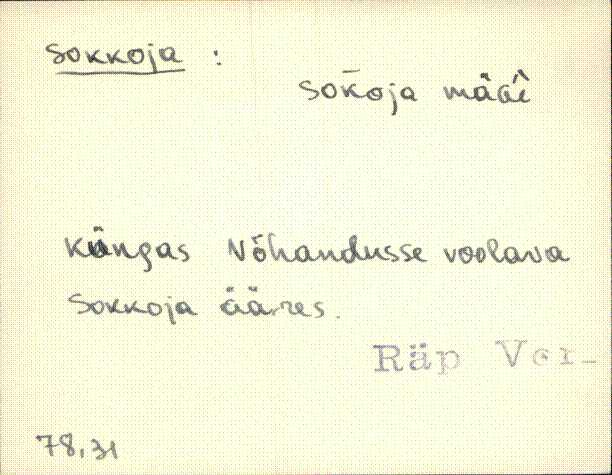 Sokkoja :
sok̄oja mäǵi
Küngas Võhandusse voolava
Sokkoja ääres.
Räp Ver-
78,31